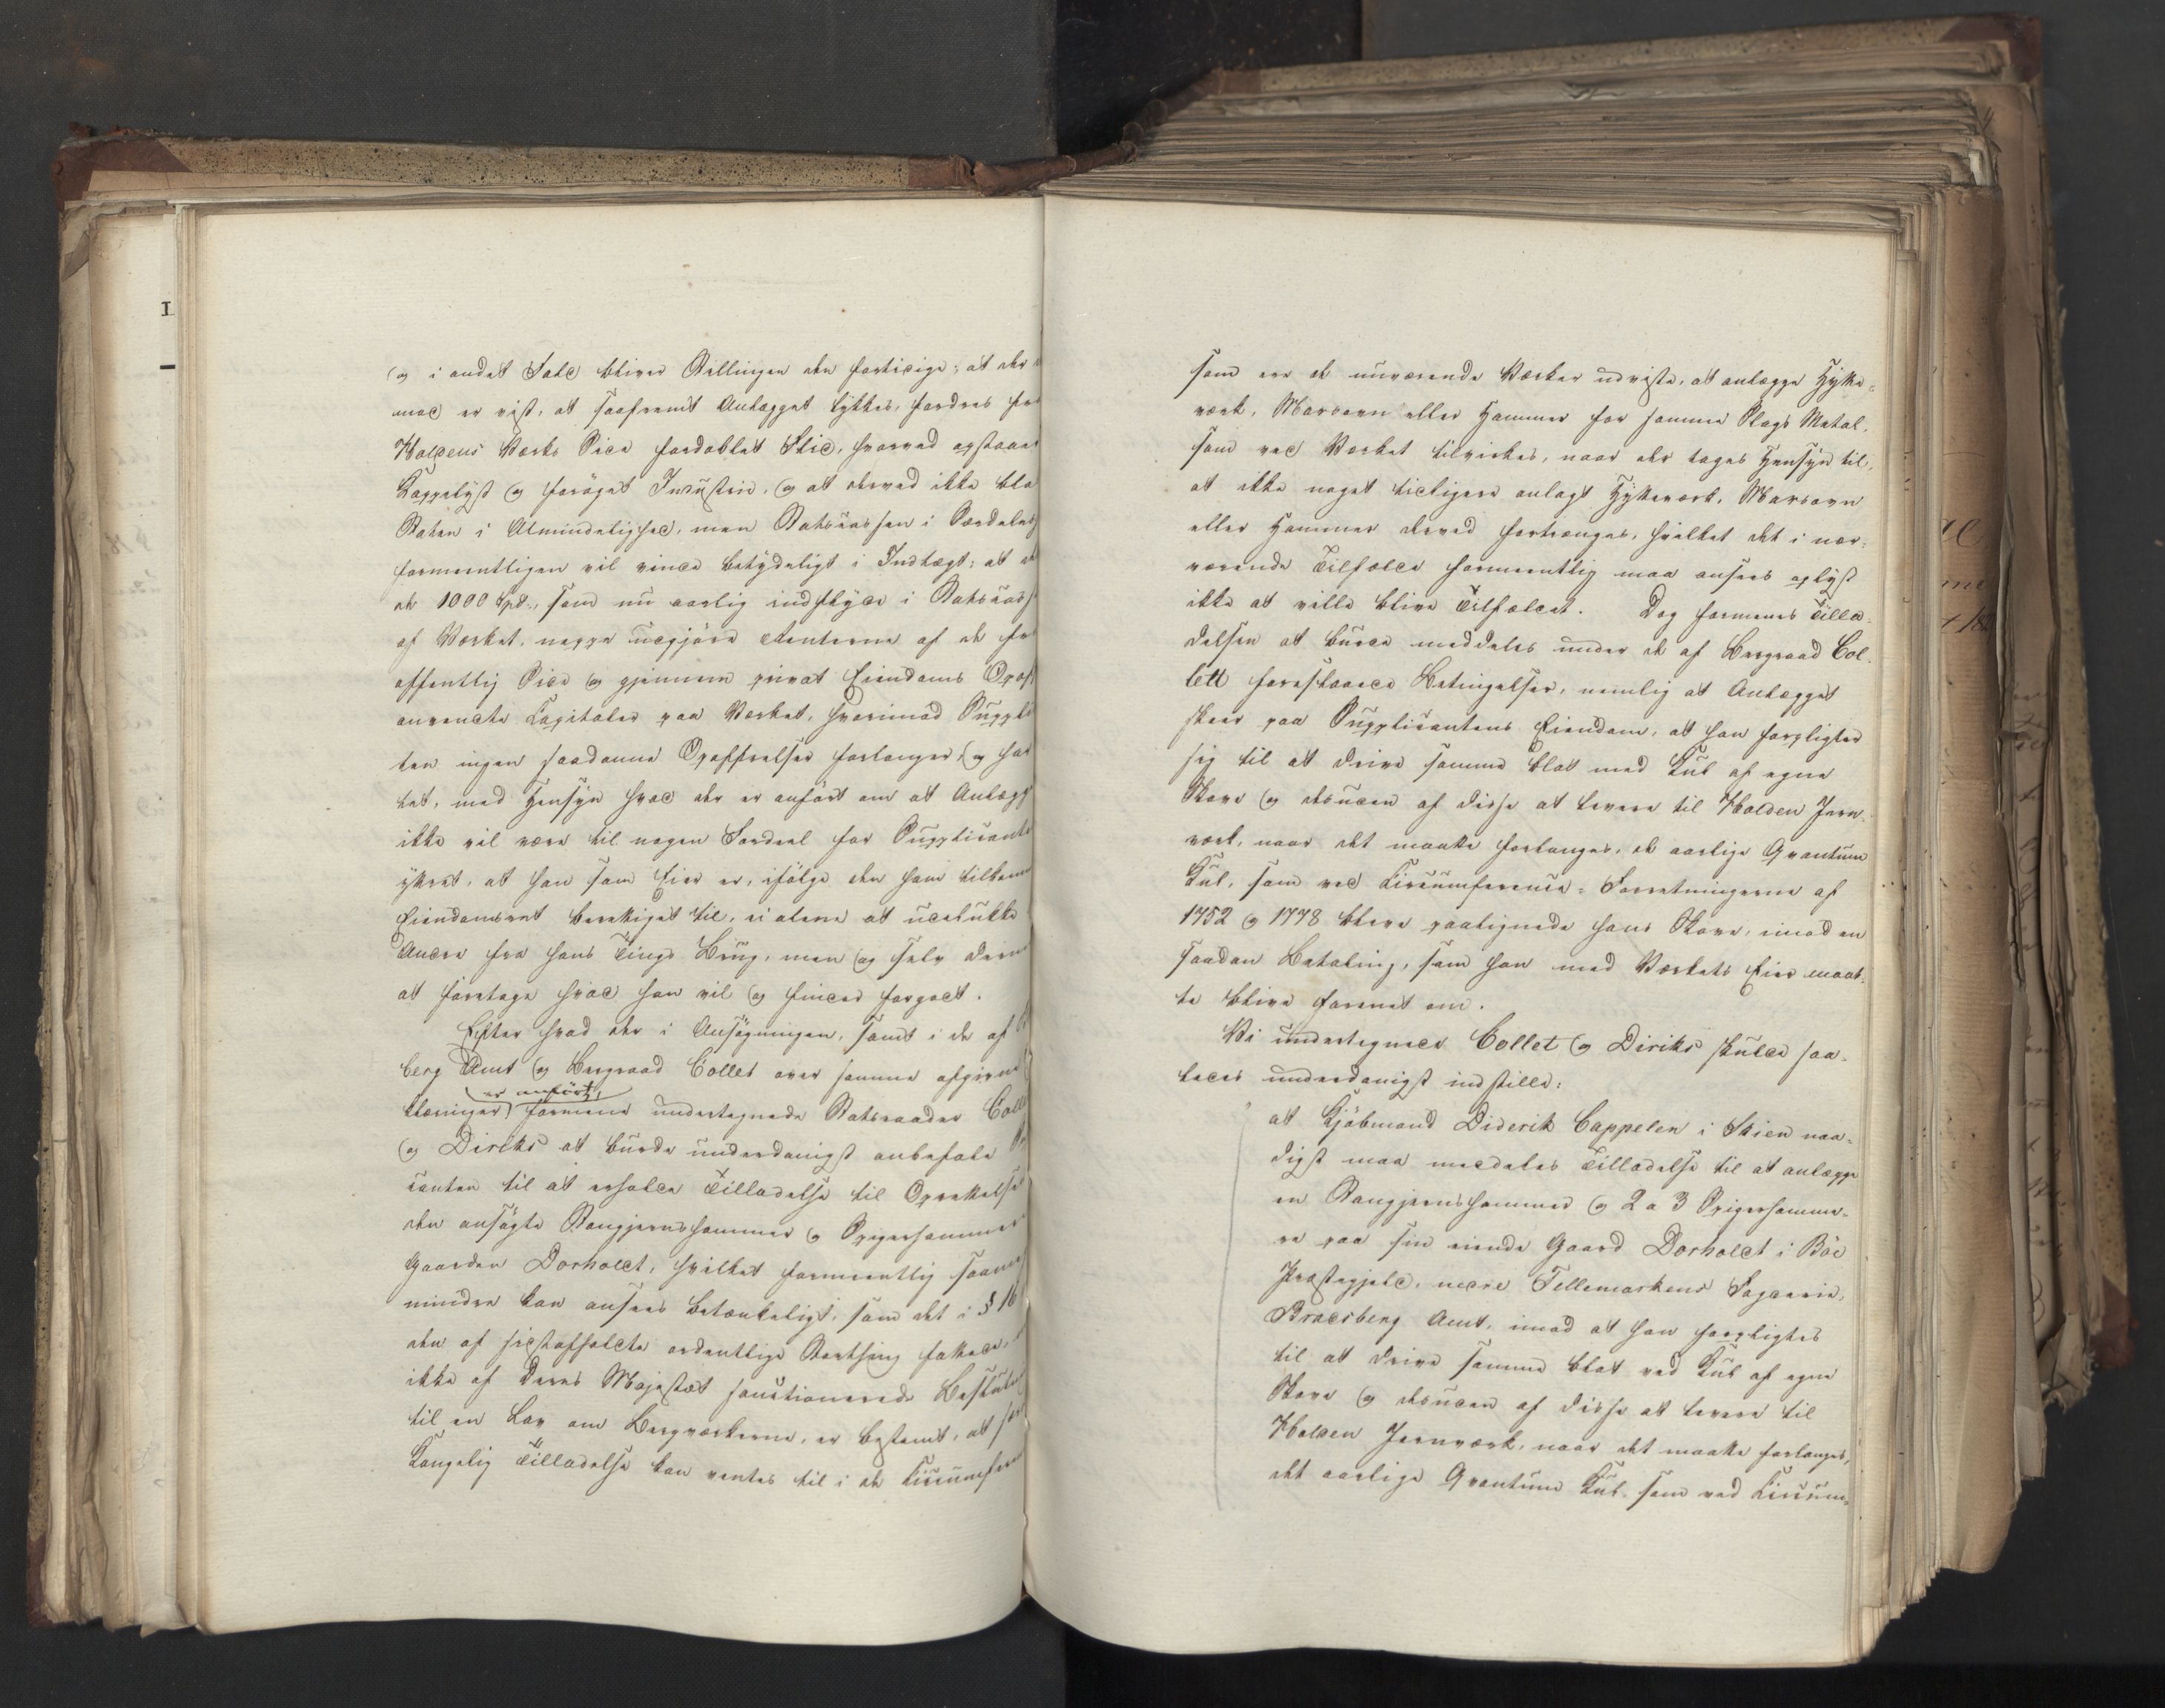 og i andet Fald bliver Stillingen den forrige; at der
mod er vist, at saafremt Anlægget lykkes, fordres fra
Holdens Værks Side fordoblet Flid, hvorved opstaaer
Kappelyst og forøget Industrie, og at derved ikke blot
Staten i Almindelighed, men Statskassen i Særdeleshed
formeentligen vil vinde betydeligt i Indtægt; at
de 1000 Spd., som nu aarlig indflyde i Statskas
af Værket, neppe udgjøre Renterne af de fra
offentlig Side og gjennem privat Eiendoms Opof
anvendte Capitaler paa Værket, hvorimod Suppli
ten ingen saadanne Opoffrelser forlanger, og har
tet, med Hensyn hvad der er anført om at Anlægg
ikke vil være til nogen Fordeel for Supplicante
yttret, at han som Eier er, ifølge den ham tilkom
Eiendomsret berettiget til, ei alene at udelukke
Andre fra hans Tings Brug, men og selv derm
at foretage hvad han vil og finder forgodt.
Efter hvad der i Ansøgningen, samt i de af
berg Amt og Bergraad Collet over samme afgivne
er anført,
klæringer formene undertegnede Statsraader Coll
og Diriks at burde underdanigst anbefale
canten til at erholde Tilladelse til Oprettelse
den ansøgte Stangjernshammer og Spigerhammer
Gaarden Dorholdt, hvilket formeentlig saame
mindre kan ansees betænkeligt, som det i § 16
den af sidstafholdte ordentlige Storthing fattede,
ikke af Deres Majestæt sanctionerede Beslut
til en Lov om Bergværkerne, er bestemt, at
Kongelig Tilladelse kan ventes til i de Circumfere
som ere de nuværende Værker udviste, at anlægge Hytte-
værk, Marovn eller Hammer for samme Slags Metal,
som ved Værket tilvirkes, naar der tages Hensyn til,
at ikke noget tidligere anlagt Hytteværk, Marovn
eller Hammer derved fortrænges, hvilket det i nær-
værende Tilfælde formeentlig maa ansees oplyst
ikke at ville blive Tilfældet. Dog formenes Tilla-
delsen at burde meddeles under de af Bergraad Col-
lett foreslaaede Betingelser, nemlig at Anlægget
skeer paa Supplicantens Eiendom, at han forpligter
sig til at drive samme blot med Kul af egne
Skove og desuden af disse at levere til Holden Jern-
værk, naar det maatte forlanges, de aarlige Qvantum
Kul, som ved Circumference-Forretningerne af
1752 og 1778 bleve paalignede hans Skove, imod en
saadan Betaling, som han med Værkets Eier maat-
te blive forenet om.
Vi undertegnede Collet og Diriks skulde saa-
ledes underdanigst indstille:
at Kjøbmand Diderik Cappelen i Skien naa-
digst maa meddeles Tilladelse til at anlægge
en Stangjernshammer og 2 a 3 Spigerhamme-
re paa sin eiende Gaard Dorholdt i Böe
Præstegjeld, nedre Tellemarkens Fogderie,
Bradsberg Amt, imod at han forpligtes
til at drive samme blot ved Kul af egne
Skove og desuden af disse at levere til
Holden Jernværk, naar det maatte forlanges,
det aarlige Qvantum Kul som ved Circum-